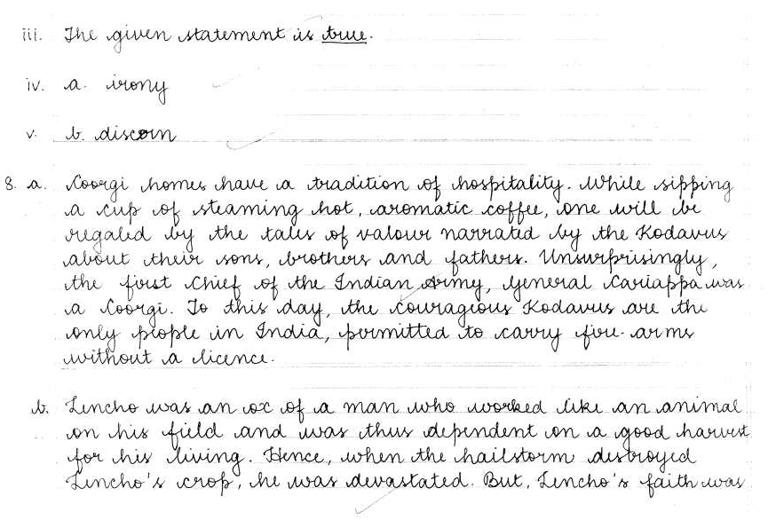 iii. The given statement is true.
iv. a. irony
v. b. discern
8. a. Coorgi homes have a tradition of hospitality. While sipping
a cup of steaming hot, aromatic coffee, one will be
regaled by the tales of valour narrated by the Kodavus
about their sons, brothers and fathers. Unsurprisingly,
the first Chief of the Indian Army, General Cariappa was
a Coorgi. To this day, the courageous Kodavus are the
only people in India, permitted to carry fire-arms
without a licence.
b. Lencho was an ox of a man who worked like an animal
on his field and was thus dependent on a good harvest
for his living. Hence, when the hailstorm destroyed
Lencho's crop, he was devastated. But, Lencho's faith was